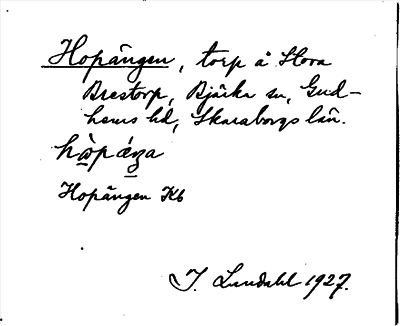 Hopängen, torp å Stora
Brestorp, Bjärka sn, Gud-
hems hd, Skaraborgs län.
hòpáŋa
Hopängen Kb
I. Lundahl 1927.